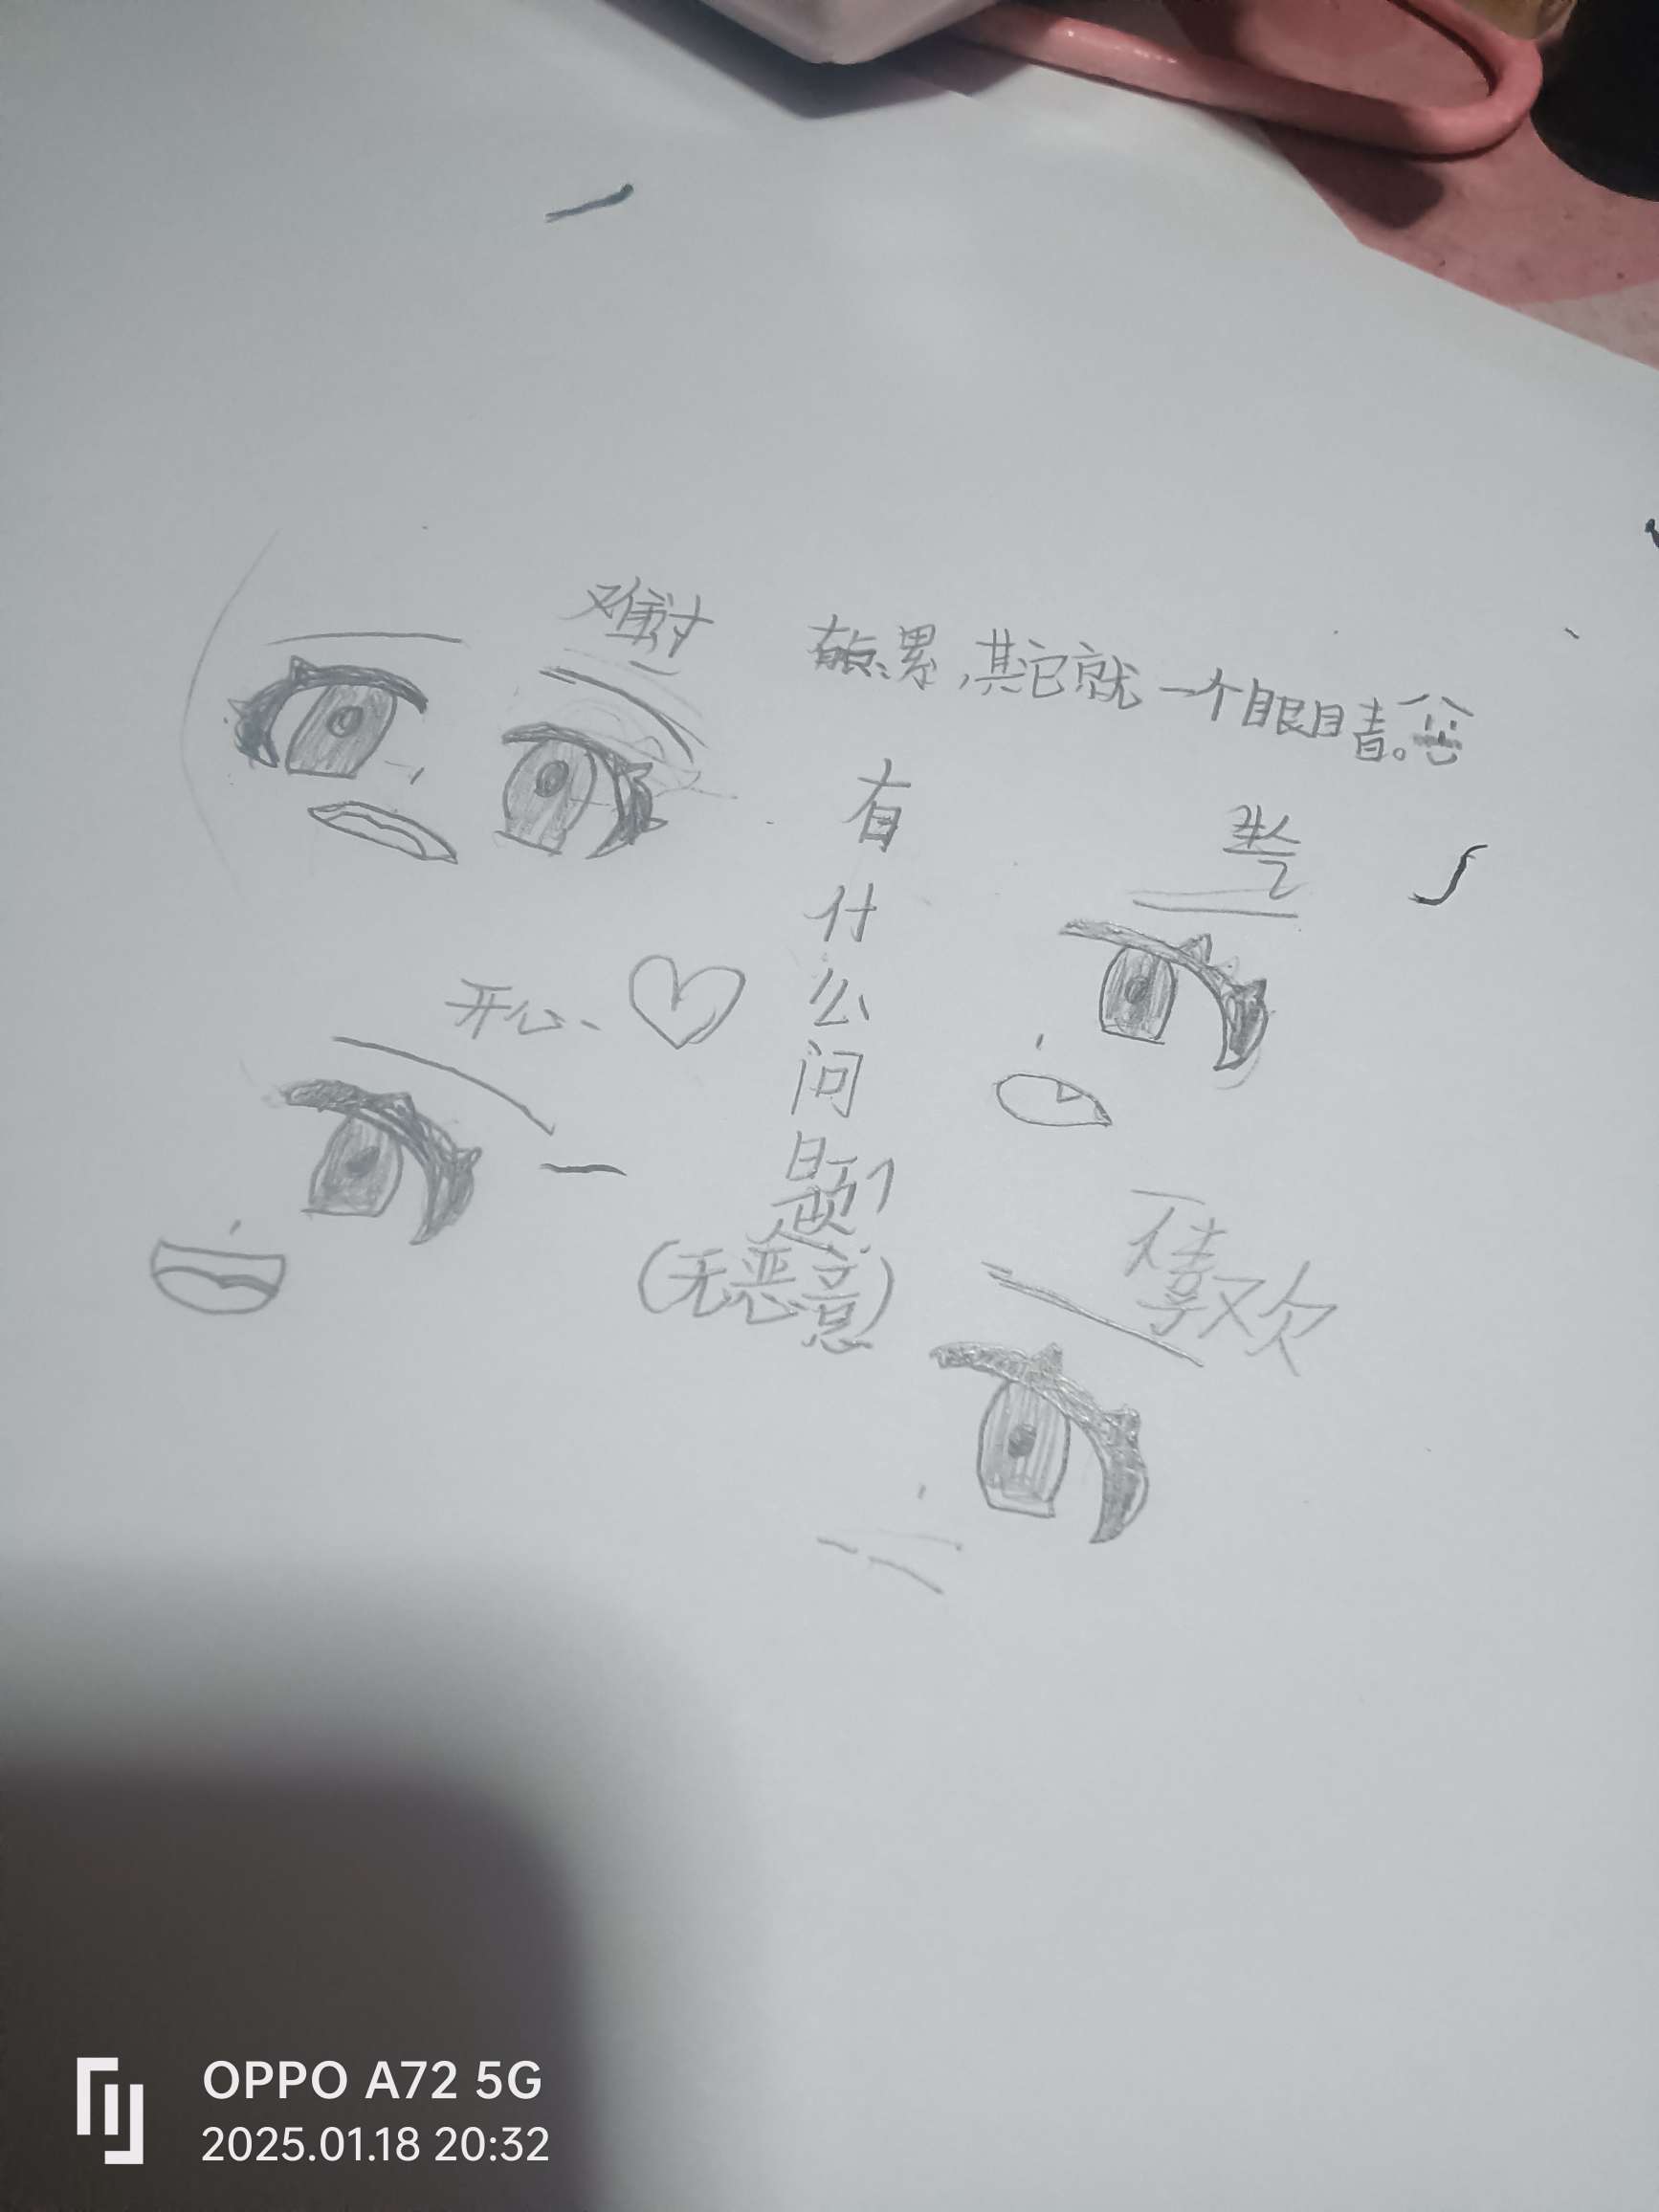 难过
有点累,其它就一个眼睛。
有什么问题
(无恶意)
生气
开心、
不喜欢
OPPO A72 5G
2025.01.18 20:32